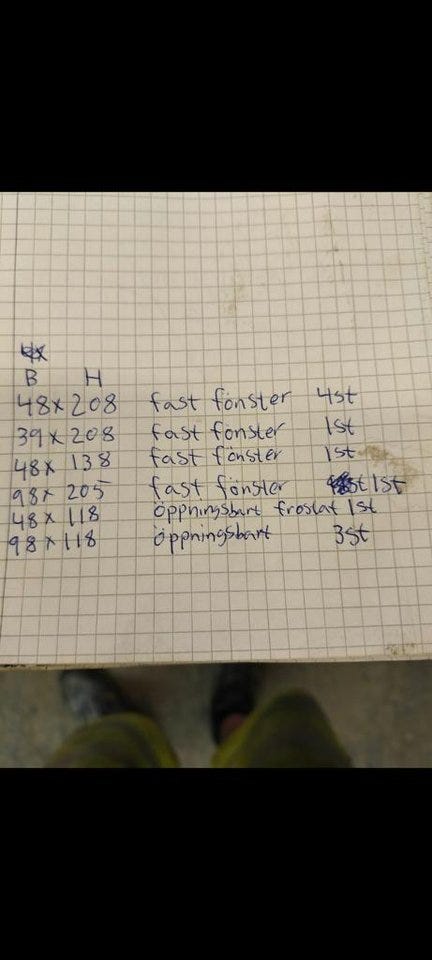 B H
48x208 fast fönster 4st
39x208 fast fönster 1st
48x138 fast fönster 1st
98x205 fast fönster 1st
48x118 öppningsbart froslat 1st
98x118 öppningsbart 3st